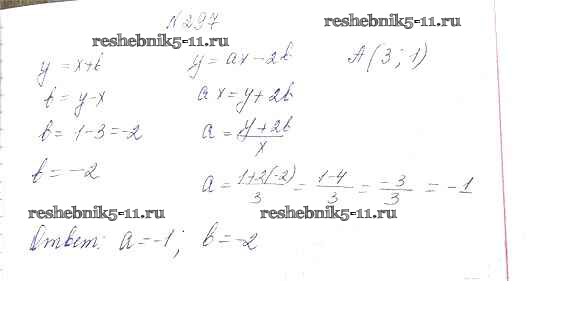 № 297
reshebnik5-11.ru
reshebnik5-11.ru
y = x+b
y = ax-2b
A(3;1)
b = y-x
ax = y+2b
b = 1-3 = -2
a = y+2b / x
b = -2
a = 1+2(-2) / 3 = 1-4 / 3 = -3 / 3 = -1
reshebnik5-11.ru
reshebnik5-11.ru
Ответ: a = -1; b = -2